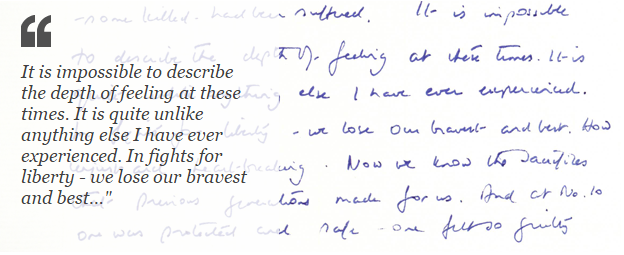 “
It is impossible to describe
the depth of feeling at these
times. It is quite unlike
anything else I have ever
experienced. In fights for
liberty - we lose our bravest
and best..."
-some killed. had been suffered. It is impossible
to describe the depth of feeling at these times. It is
anything else I have ever experienced.
liberty - we lose our bravest and best. How
and heartbreaking. Now we know the sacrifices
that previous generations made for us. And at No. 10
one was protected and safe - one felt so guilty